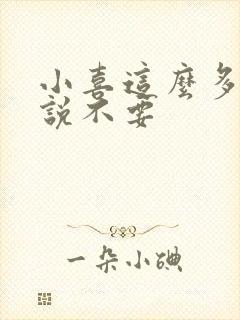 小喜這麼多
說不要
一朵小碘